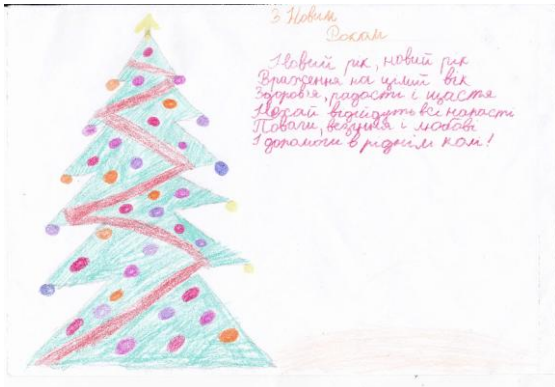 З Новим
Роком
Новий рік, новий рік
Враження на цілий вік
Здоров'я, радости і щастя
Нехай відійдуть всі напасті
Поваги, везіння і любові
І допомоги в ріднім